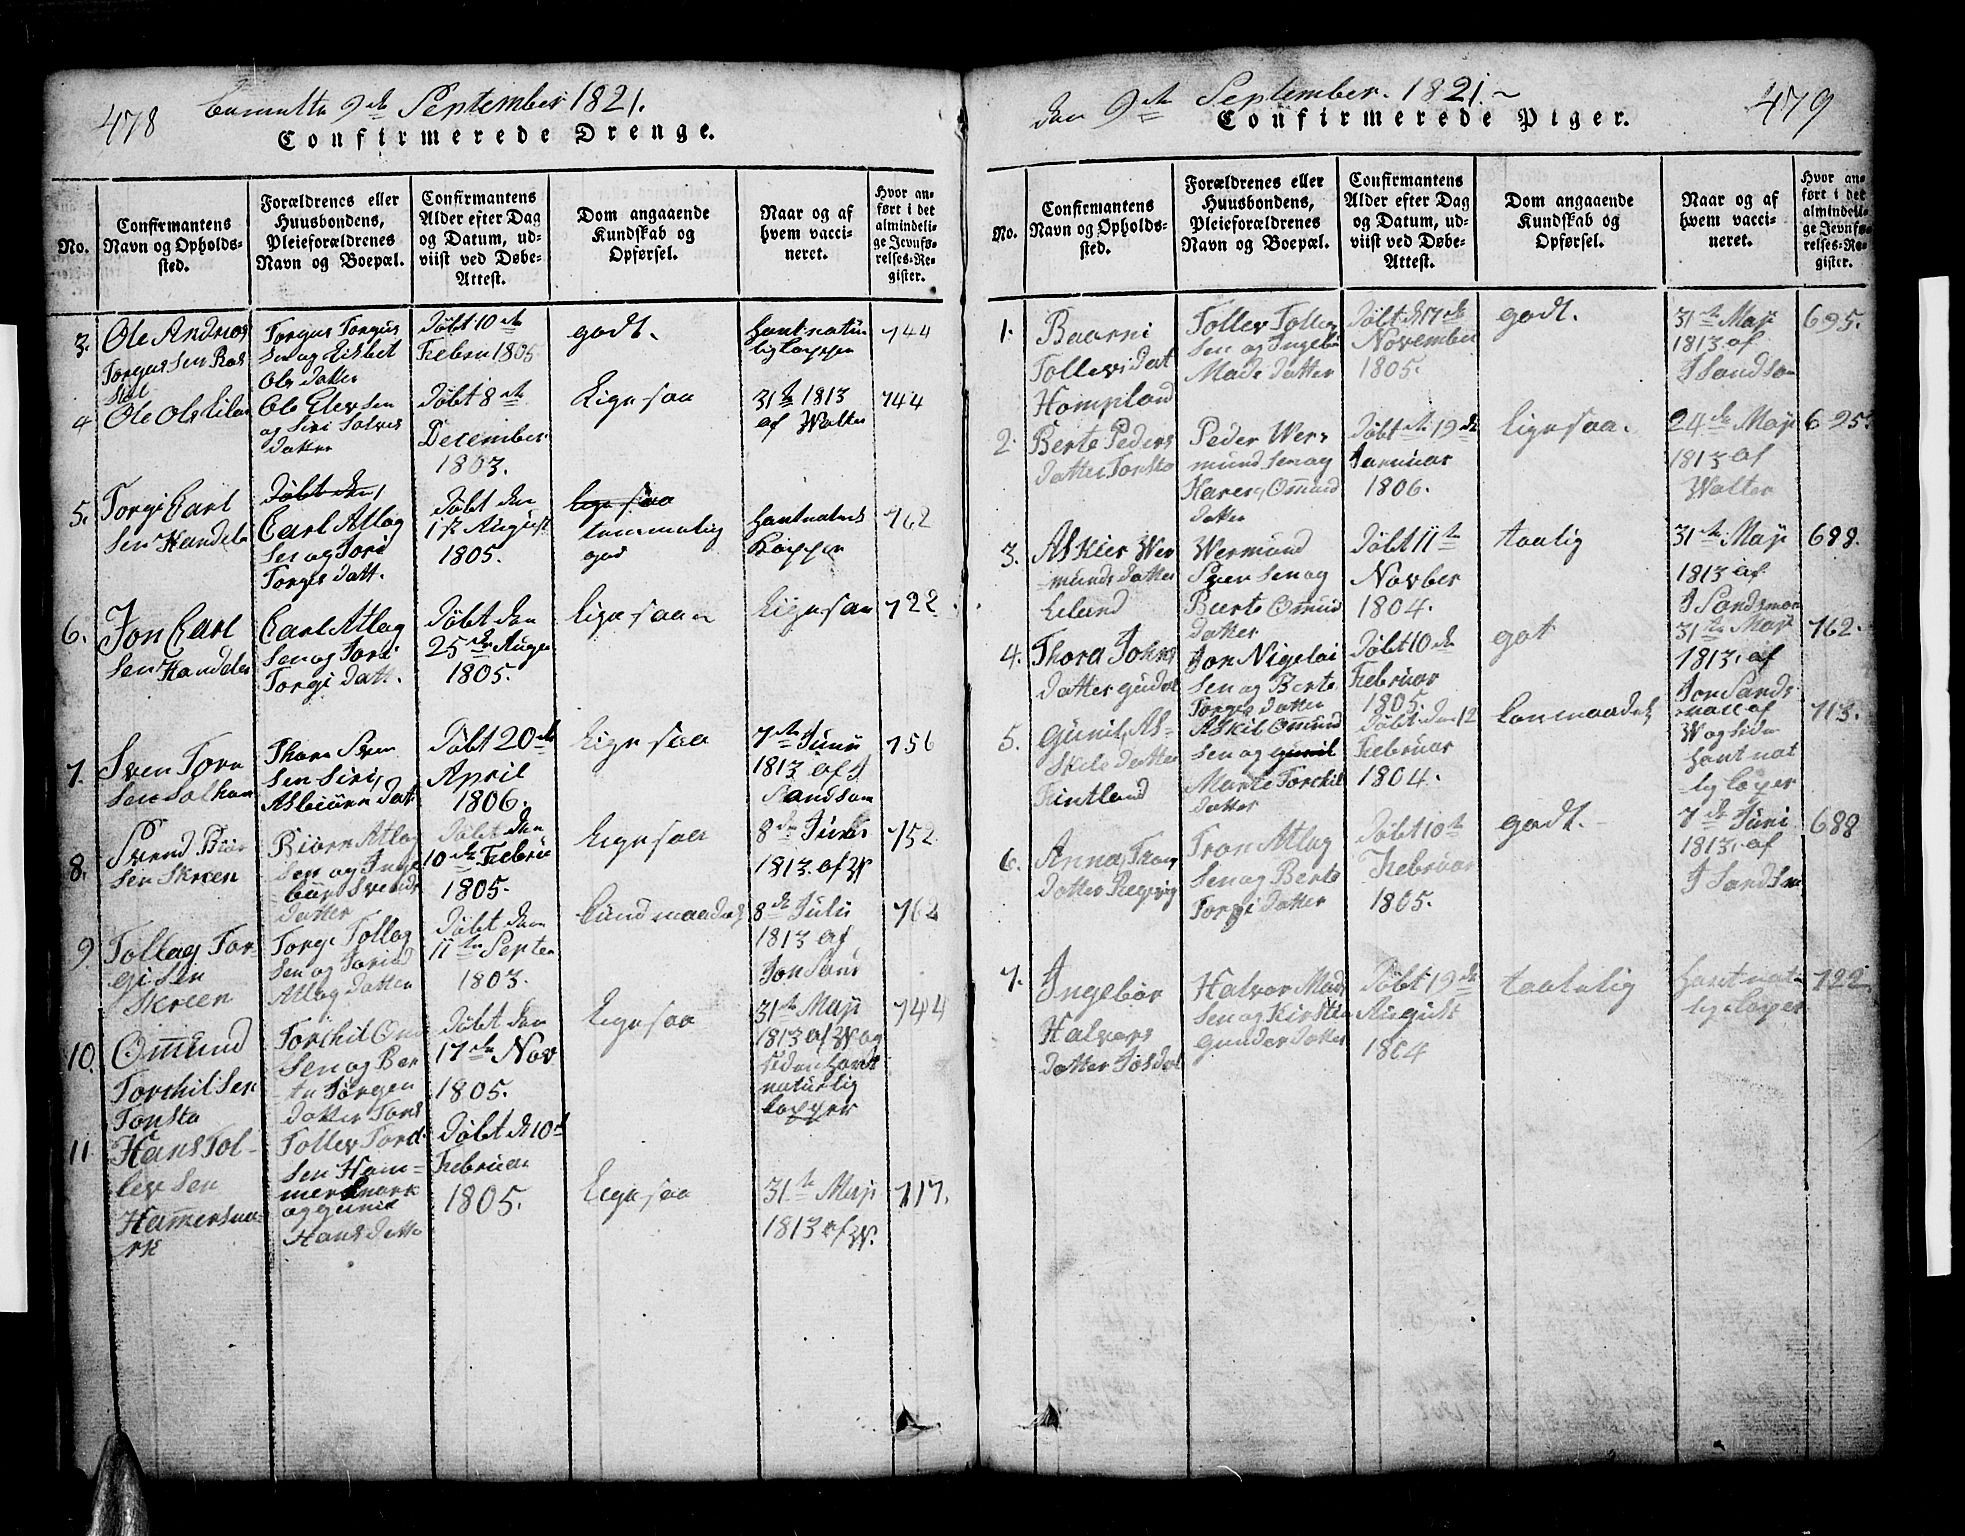 478
9de September 1821.
Confirmerede Drenge.
No.
Confirmantens
Navn og Opholds-
sted.
Forældrenes eller
Huusbondens,
Pleieforældrenes
Navn og Boepæl.
Confirmantens
Alder efter Dag
og Datum, ud-
viist ved Døbe-
Attest.
Dom angaaende
Kundskab og
Opførsel.
Naar og af
hvem vacci-
neret.
Hvor an-
ført i det
almindeli-
ge Jevnfø-
relses-Re-
gister.
3.
Ole Andreas
Torgus Sen
Torgus Torgus
Sen og Lisbet
Ols datter
Døbt 10de
Febru 1805
godt.
hart natur
lig Copper
744
4
Ole Ols
Ole Elev Sen
og Siri Salves
datter
Døbt 8de
December
1803.
Ligesaa
31te 1813
af Walter
744
5.
Torgi Carl
Sen Handel
Døbt den
Carl Atlag
Sen og Jori
Torges datt.
Døbt den
17 August
1805.
lige saa
temmelig
god
Kopper
762
6.
Jon Carl
Sen Handel
Carl Atlag
Sen og Jori
Torgi datt.
Døbt den
25de Augu
1805.
Ligesaa
Ligesaa
722
7.
Sven Torn
Sen Solhom
Thorn Sven
Sen Siri
Asbiörn dat
Døbt 20de
April
1806.
Ligesaa
7de Juni
1813 af J
Sandsom
756
8.
Svend Biör
Sen Skreen
Biörn Atlag
Sen og Inge
bör Svends
datter
Døbt den
10de Febru
1805.
Ligesaa
8de Juni
1813. af W
752
9
Tollag Tor-
gi Sen
Skreen
Torge Tollag
Sen og Torind
Atlag datter
Døbt den
11te Septen
1803.
8de Juli
1813 af
Jon San
762
10
Omund
Torchil Sen
Tonsta
Torchil Om
Sen og Ber
te Jörgen
datter Tons
Døbt den
17de Nov
1805.
Ligesaa
31te Maji
1813 af W og
siden hart
naturlig
Copper
744
11
Hans Tol-
lev Sen
Hamersma-
rk
Tollev Tord
Sen Ham-
mersmark
og Gunil
Hans datte
Døbt d 10de
Februar
1805.
Ligesaa
31te Maji
1813 af W.
717.
479
den 9de September. 1821.
Confirmerede Piger.
No.
Confirmantens
Navn og Opholds-
sted.
Forældrenes eller
Huusbondens,
Pleieforældrenes
Navn og Boepæl.
Confirmantens
Alder efter Dag
og Datum, ud-
viist ved Døbe-
Attest.
Dom angaaende
Kundskab og
Opførsel.
Naar og af
hvem vacci-
neret.
Hvor an-
ført i det
almindeli-
ge Jevnfø-
relses-Re-
gister.
1.
Baarni
Tollevs Dat
Hompland
Tollev Tolleg
Sen og Ingebo
Mads datter
Døbt d 17de
November
1805.
godt.
31te Maji
1813 af
J Sandsom
695.
2.
Berte Peders
datter Tonsta
Peder Wer
mund Sen og
Karen Omund
datter
Døbt d. 19de
Januar
1806.
Ligesaa.
24de Maji
1813 af
Walter
695
3.
Askier Wer
munds datter
Eilund
Wermund
Sver Sen og
Berte Omun
datter
Døbt 11te
Novber
1804.
taalig
31te Maji
1813 af
J Sandsmon
688.
4.
Thora Johns
datter Gudel
Jon Nigelai
Sen og Berte
Torges datter
Døbt 10de
Februar
1805.
got
31te Maji
1813. af
Jon Sands
mon
762.
5.
Gunil As-
kels datter
Fintland
Askil Omund
Sen og Gunil
Marte Torchil
datter
Døbt den 12
Februar
1804.
W og siden
hart nat
lig Coper
713.
6.
Anna Tron
datter Regevig
Tron Atlag
Sen og Berte
Torgi datter
Døbt 10te
Februar
1805.
godt.
7de Juni
1813. af
J Sandsm
688
7.
Ingebör
Halvors
datter Josdal
Halvor Mads
Sen og Kirsti
Gunder datter
Døbt 19de
August
1804
taalelig
hart nat
lig Coper
722